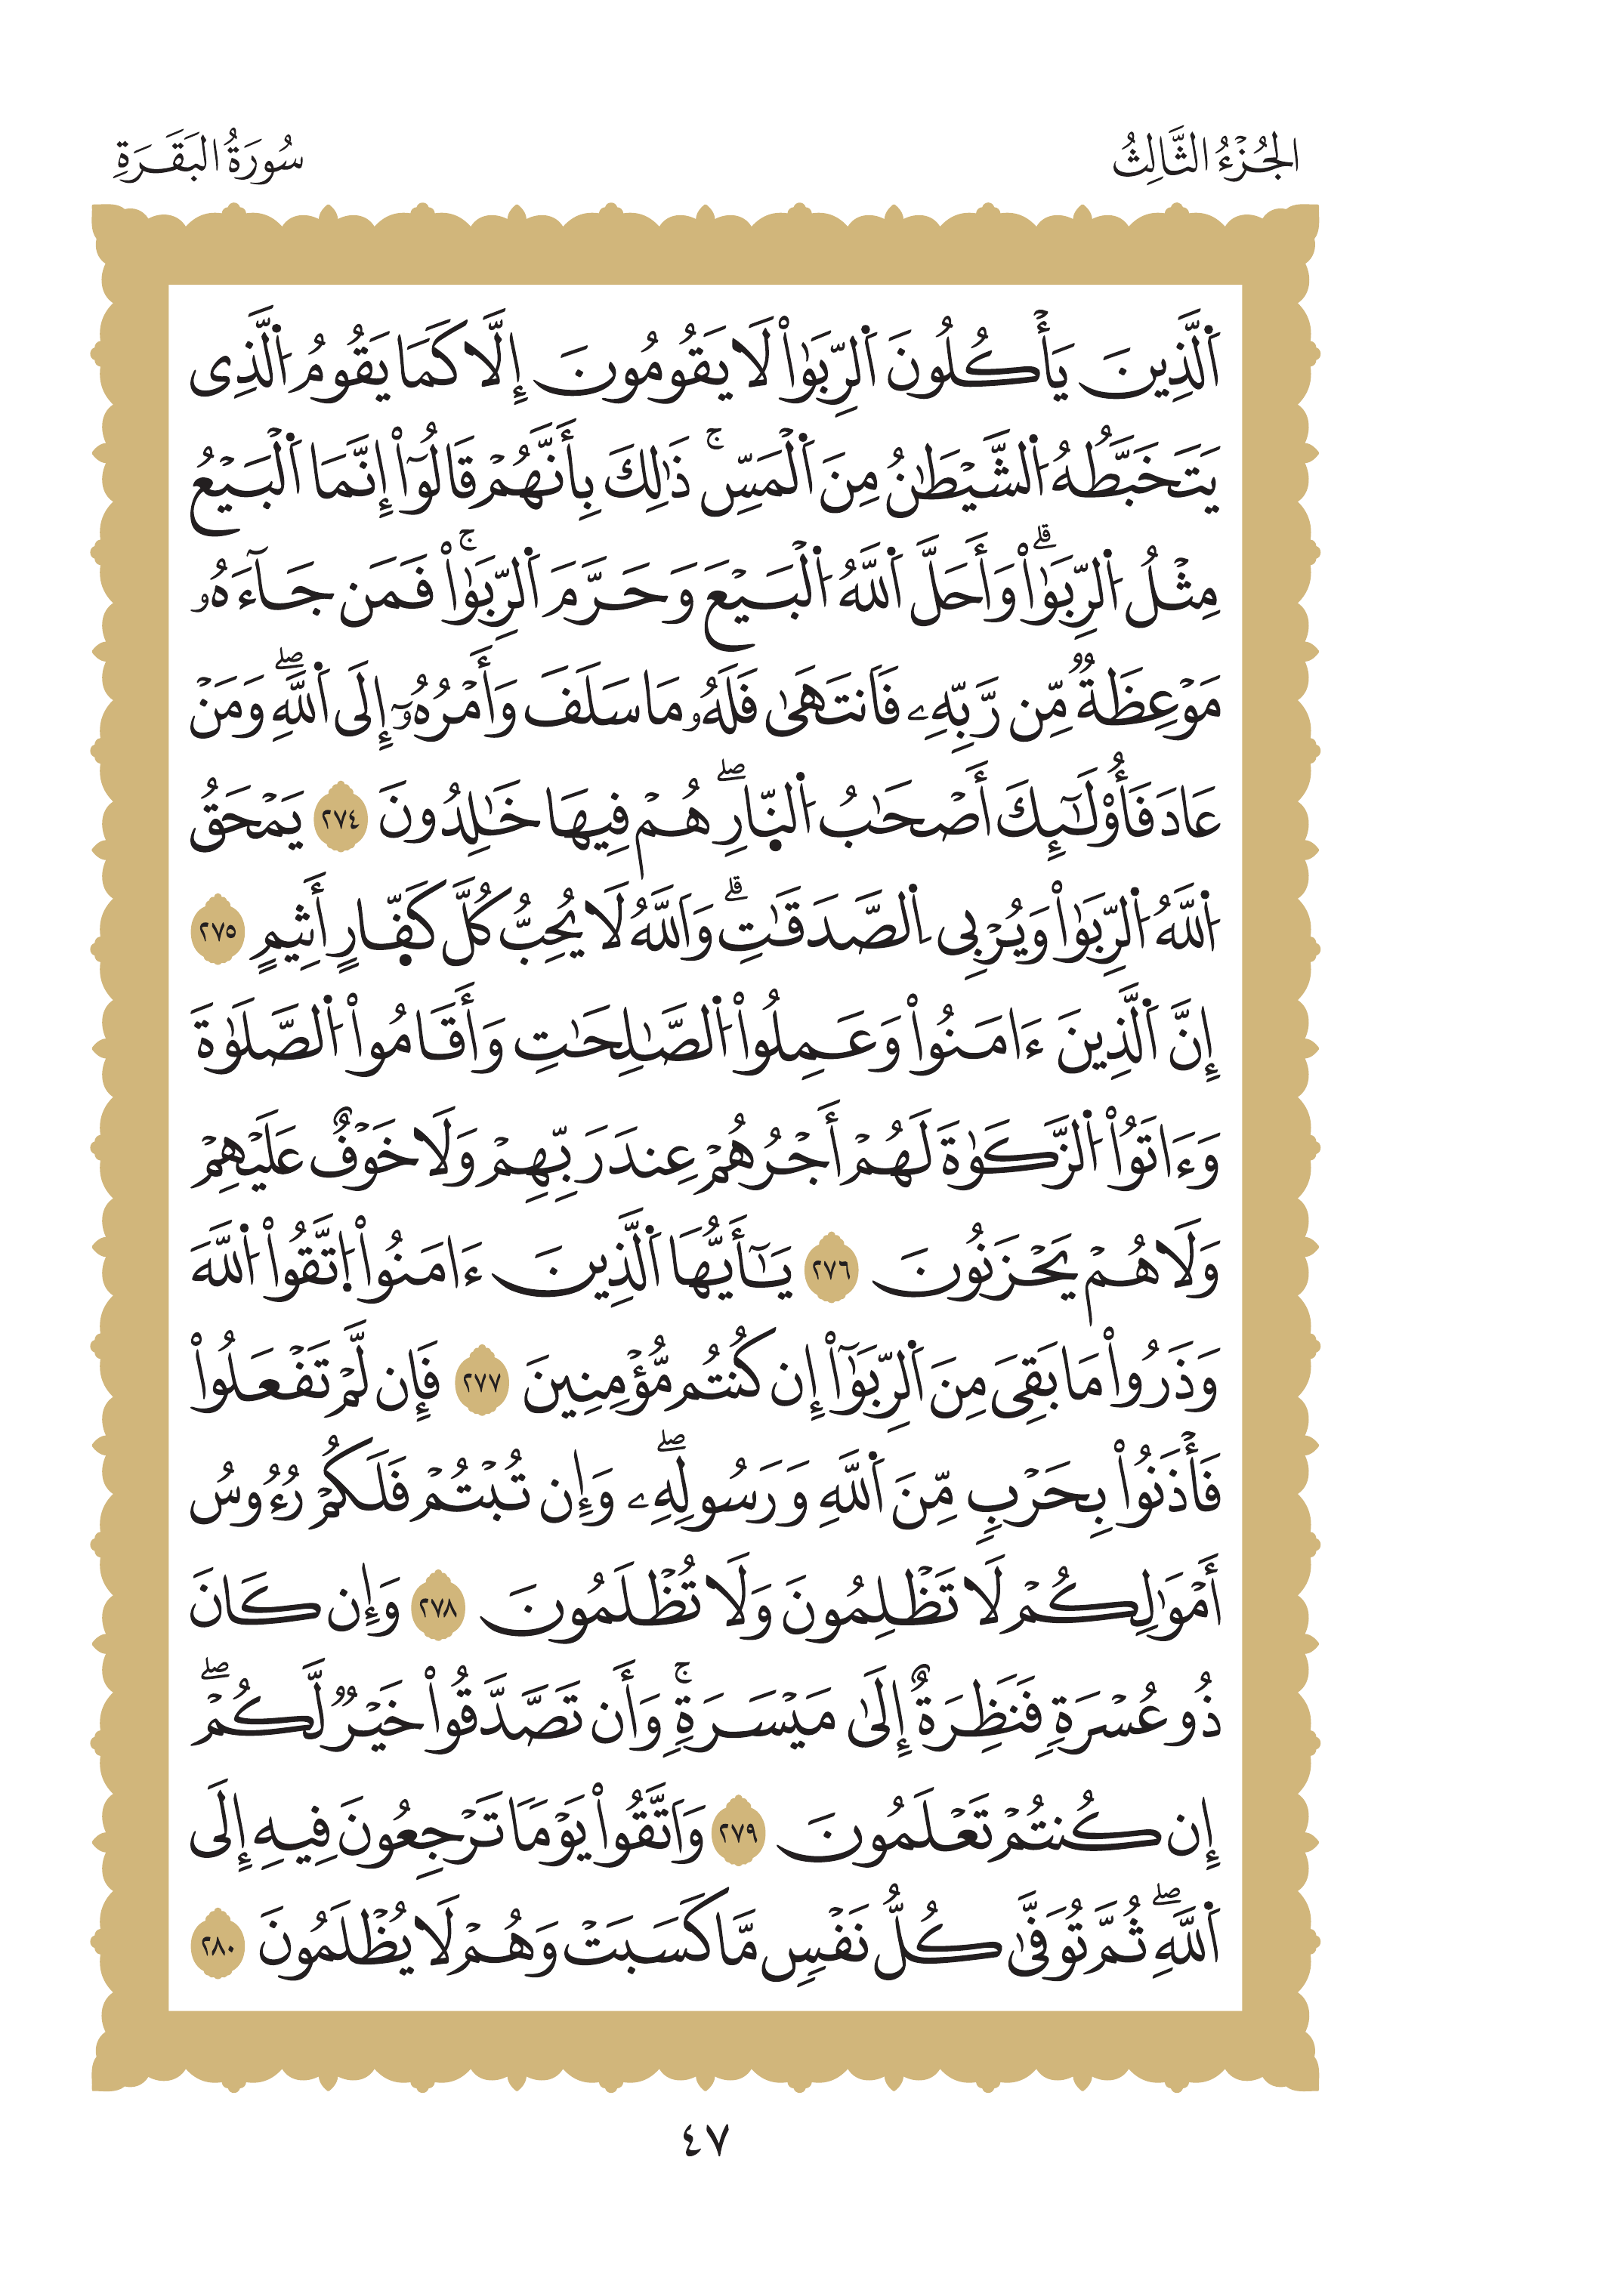 الجُزْءُ الثَّالِثُ
سُورَةُ البَقَرَةِ
اَ۬لَّذِينَ يَأْكُلُونَ اَ۬لرِّبَوٰاْ لَا يَقُومُونَ إِلَّا كَمَا يَقُومُ اُ۬لَّذِى
يَتَخَبَّطُهُ اُ۬لشَّيْطَٰنُ مِنَ اَ۬لْمَسِّۚ ذَٰلِكَ بِأَنَّهُمْ قَالُوٓاْ إِنَّمَا اَ۬لْبَيْعُ
مِثْلُ اُ۬لرِّبَوٰاْۗ وَأَحَلَّ اَ۬للَّهُ اُ۬لْبَيْعَ وَحَرَّمَ اَ۬لرِّبَوٰاْۚ فَمَن جَآءَهُۥ
مَوْعِظَةٌ مِّن رَّبِّهِۦ فَانتَهَىٰ فَلَهُۥ مَا سَلَفَ وَأَمْرُهُۥٓ إِلَى اَ۬للَّهِۖ وَمَنْ
عَادَ فَأُوْلَٰٓئِكَ أَصْحَٰبُ اُ۬لنّ۪ارِۖ هُمْ فِيهَا خَٰلِدُونَ ٢٧٤ يَمْحَقُ
اُ۬للَّهُ اُ۬لرِّبَوٰاْ وَيُرْبِى اِ۬لصَّدَقَٰتِۗ وَاَللَّهُ لَا يُحِبُّ كُلَّ كَفّ۪ارٍ أَثِيمٍ ٢٧٥
إِنَّ اَ۬لَّذِينَ ءَامَنُواْ وَعَمِلُواْ اُ۬لصَّٰلِحَٰتِ وَأَقَامُواْ اُ۬لصَّلَوٰةَ
وَءَاتَوُاْ اُ۬لزَّكَوٰةَ لَهُمْ أَجْرُهُمْ عِندَ رَبِّهِمْ وَلَا خَوْفٌ عَلَيْهِمْ
وَلَا هُمْ يَحْزَنُونَ ٢٧٦ يَٰٓأَيُّهَا اَ۬لَّذِينَ ءَامَنُواْ اُ۪تَّقُواْ اُ۬للَّهَ
وَذَرُواْ مَا بَقِىَ مِنَ اَ۬لرِّبَوٰٓاْ إِن كُنتُم مُّؤْمِنِينَ ٢٧٧ فَإِن لَّمْ تَفْعَلُواْ
فَأْذَنُواْ بِحَرْبٍ مِّنَ اَ۬للَّهِ وَرَسُولِهِۦۖ وَإِن تُبْتُمْ فَلَكُمْ رُءُوسُ
أَمْوَٰلِكُمْ لَا تَظْلِمُونَ وَلَا تُظْلَمُونَ ٢٧٨ وَإِن كَانَ
ذُو عُسْرَةٍ فَنَظِرَةٌ إِلَىٰ مَيْسَرَةٍۚ وَأَن تَصَّدَّقُواْ خَيْرٌ لَّكُمْۖ
إِن كُنتُمْ تَعْلَمُونَ ٢٧٩ وَاَتَّقُواْ يَوْمًا تَرْجِعُونَ فِيهِ إِلَى
اَ۬للَّهِۖ ثُمَّ تُوَفَّىٰ كُلُّ نَفْسٍ مَّا كَسَبَتْ وَهُمْ لَا يُظْلَمُونَ ٢٨٠
٤٧